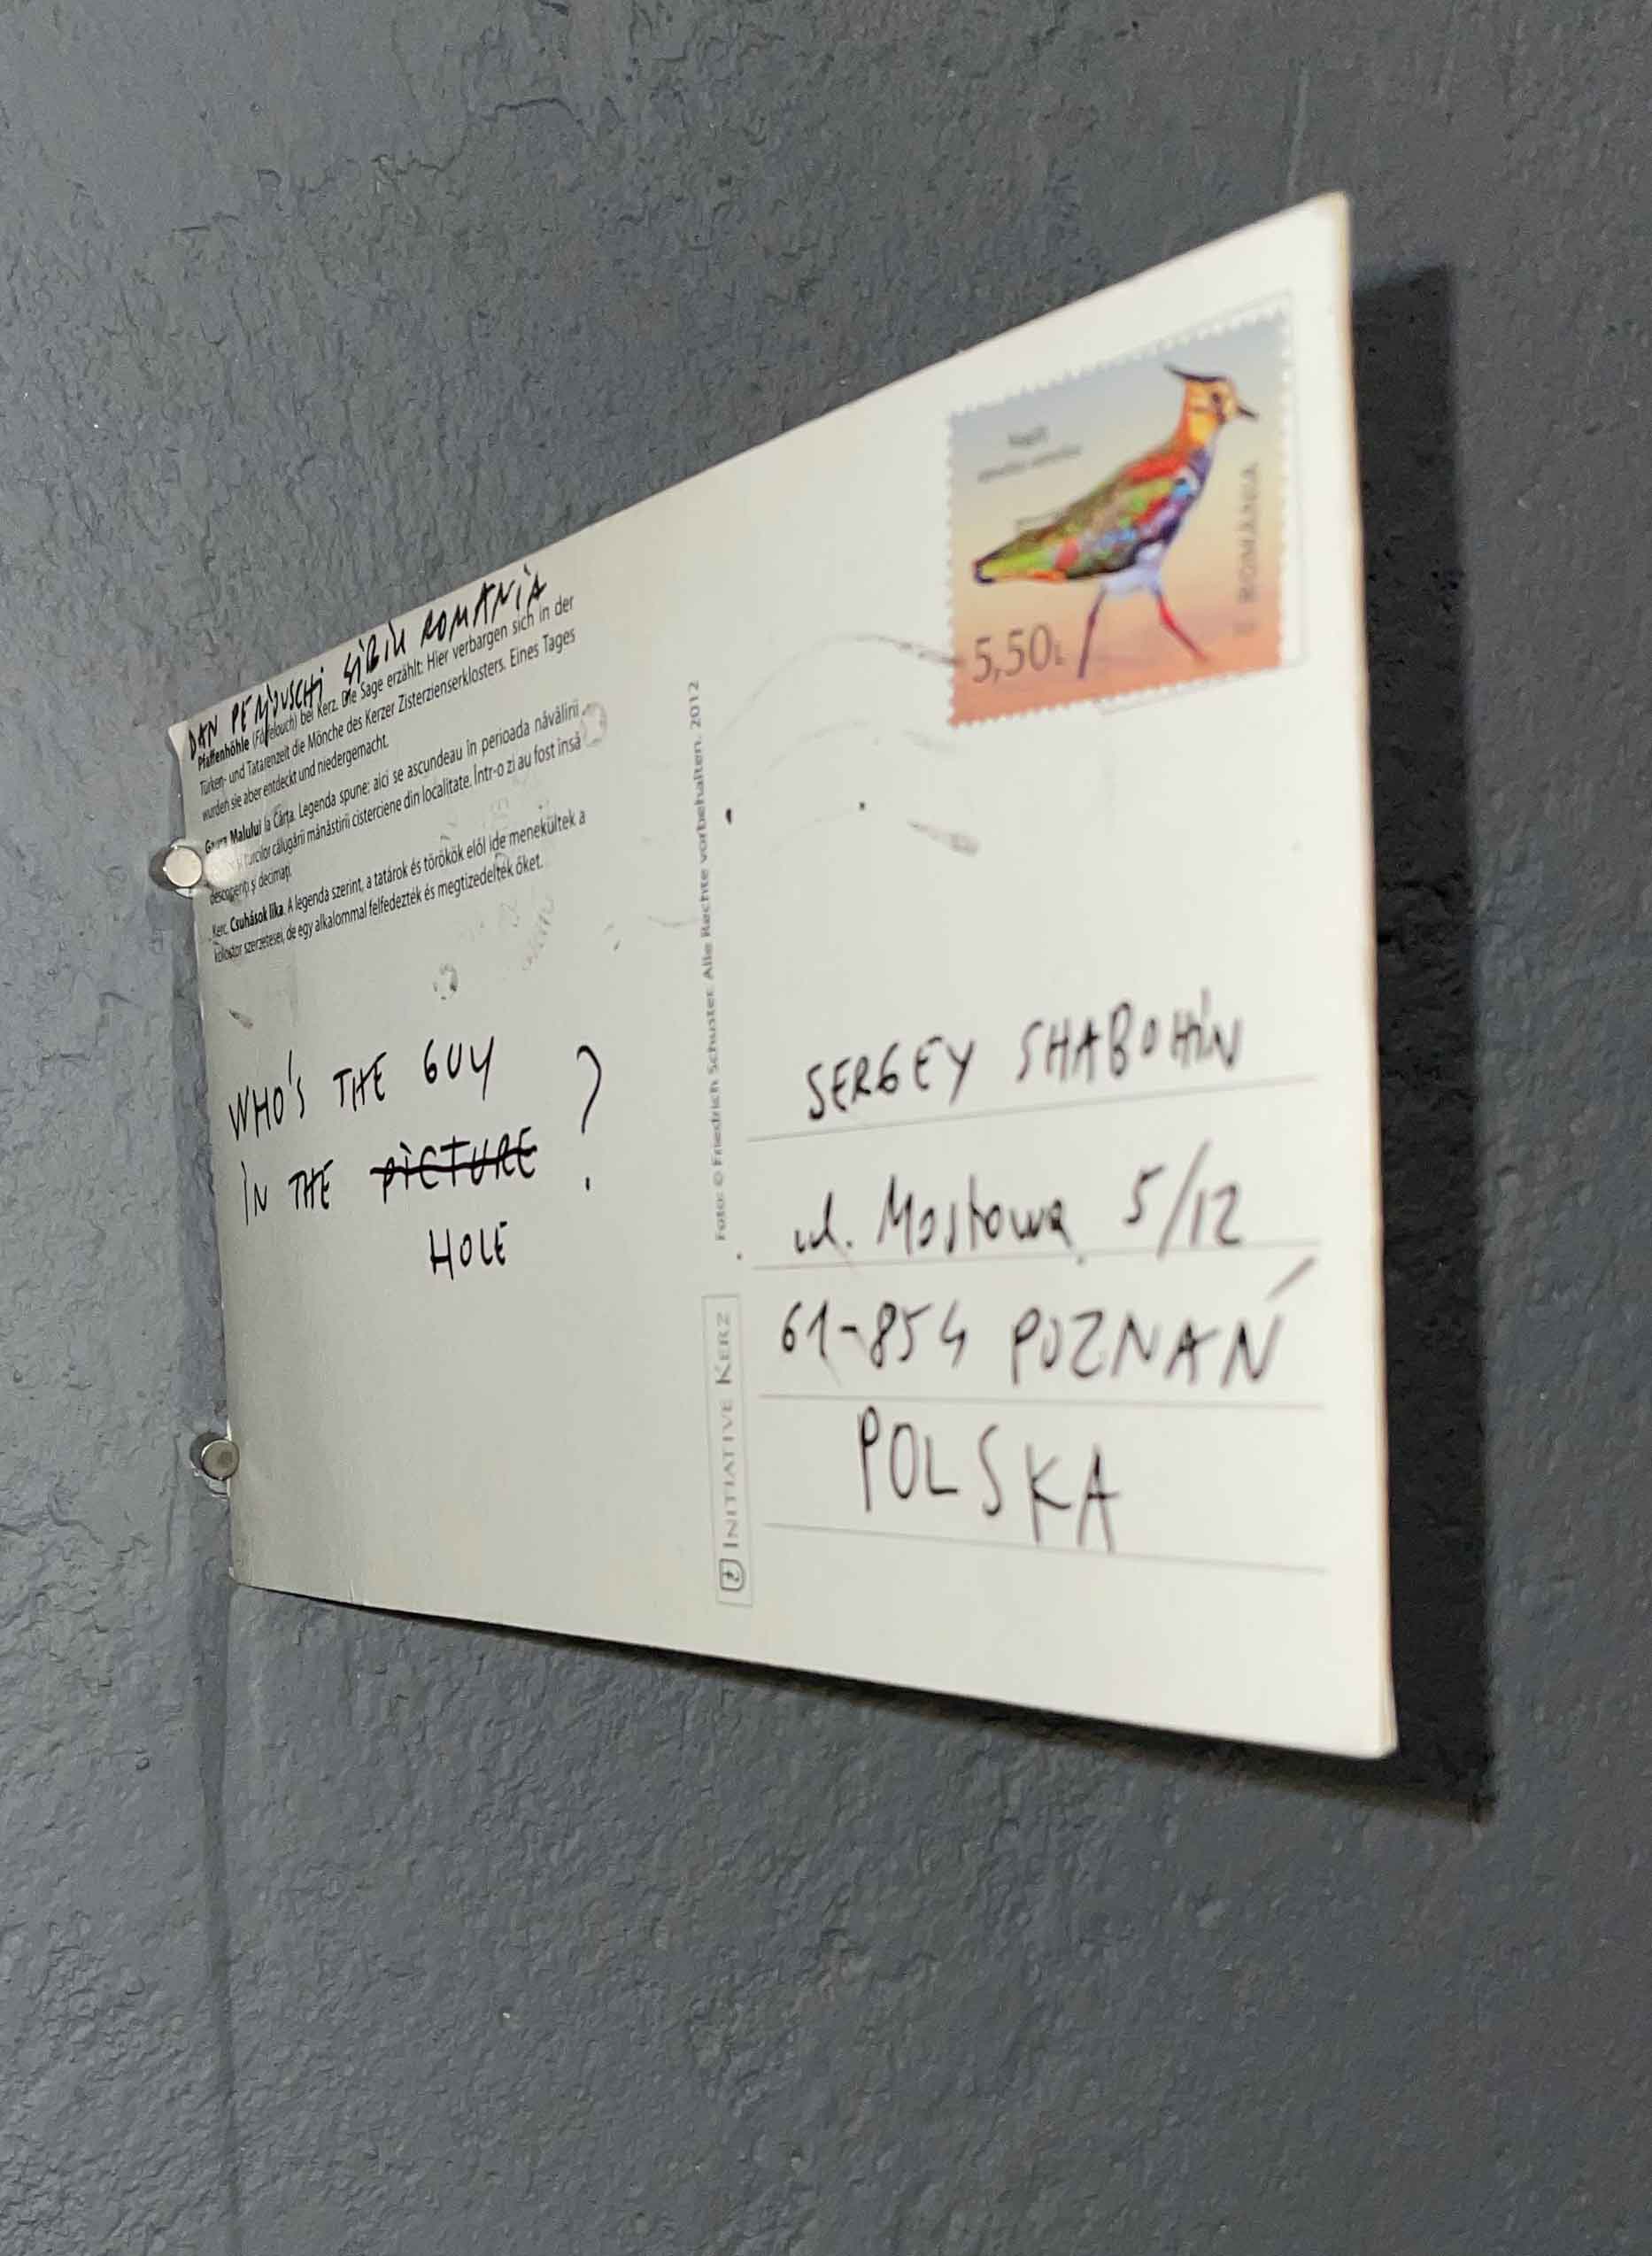 DAN PERJOVSCHI SIBIU ROMANIA
Pfaffenhöhle bei Kerz. Die Sage erzählt: Hier verbargen sich in der
Türken- und Tatarenzeit die Mönche des Kerzer Zisterzienserklosters. Eines Tages
wurden sie aber entdeckt und niedergemacht.
Gaura Malului la Cârța. Legenda spune: aici se ascundeau în perioada năvălirii
turcilor călugării mănăstirii cisterciene din localitate. Într-o zi au fost însă
descoperiți și decimați.
Kerc. Csuhások lika. A legenda szerint, a tatárok és törökök elől ide menekültek a
kolostor szerzetesei, de egy alkalommal felfedezték és megtizedelték őket.
WHO'S THE GUY
IN THE PICTURE ?
HOLE
Foto: © Friedrich Schuster. Alle Rechte vorbehalten. 2012
INITIATIVE KERZ
5,50L
ROMÂNIA
SERGEY SHABOHIN
ul. Mostowa 5/12
61-854 POZNAŃ
POLSKA